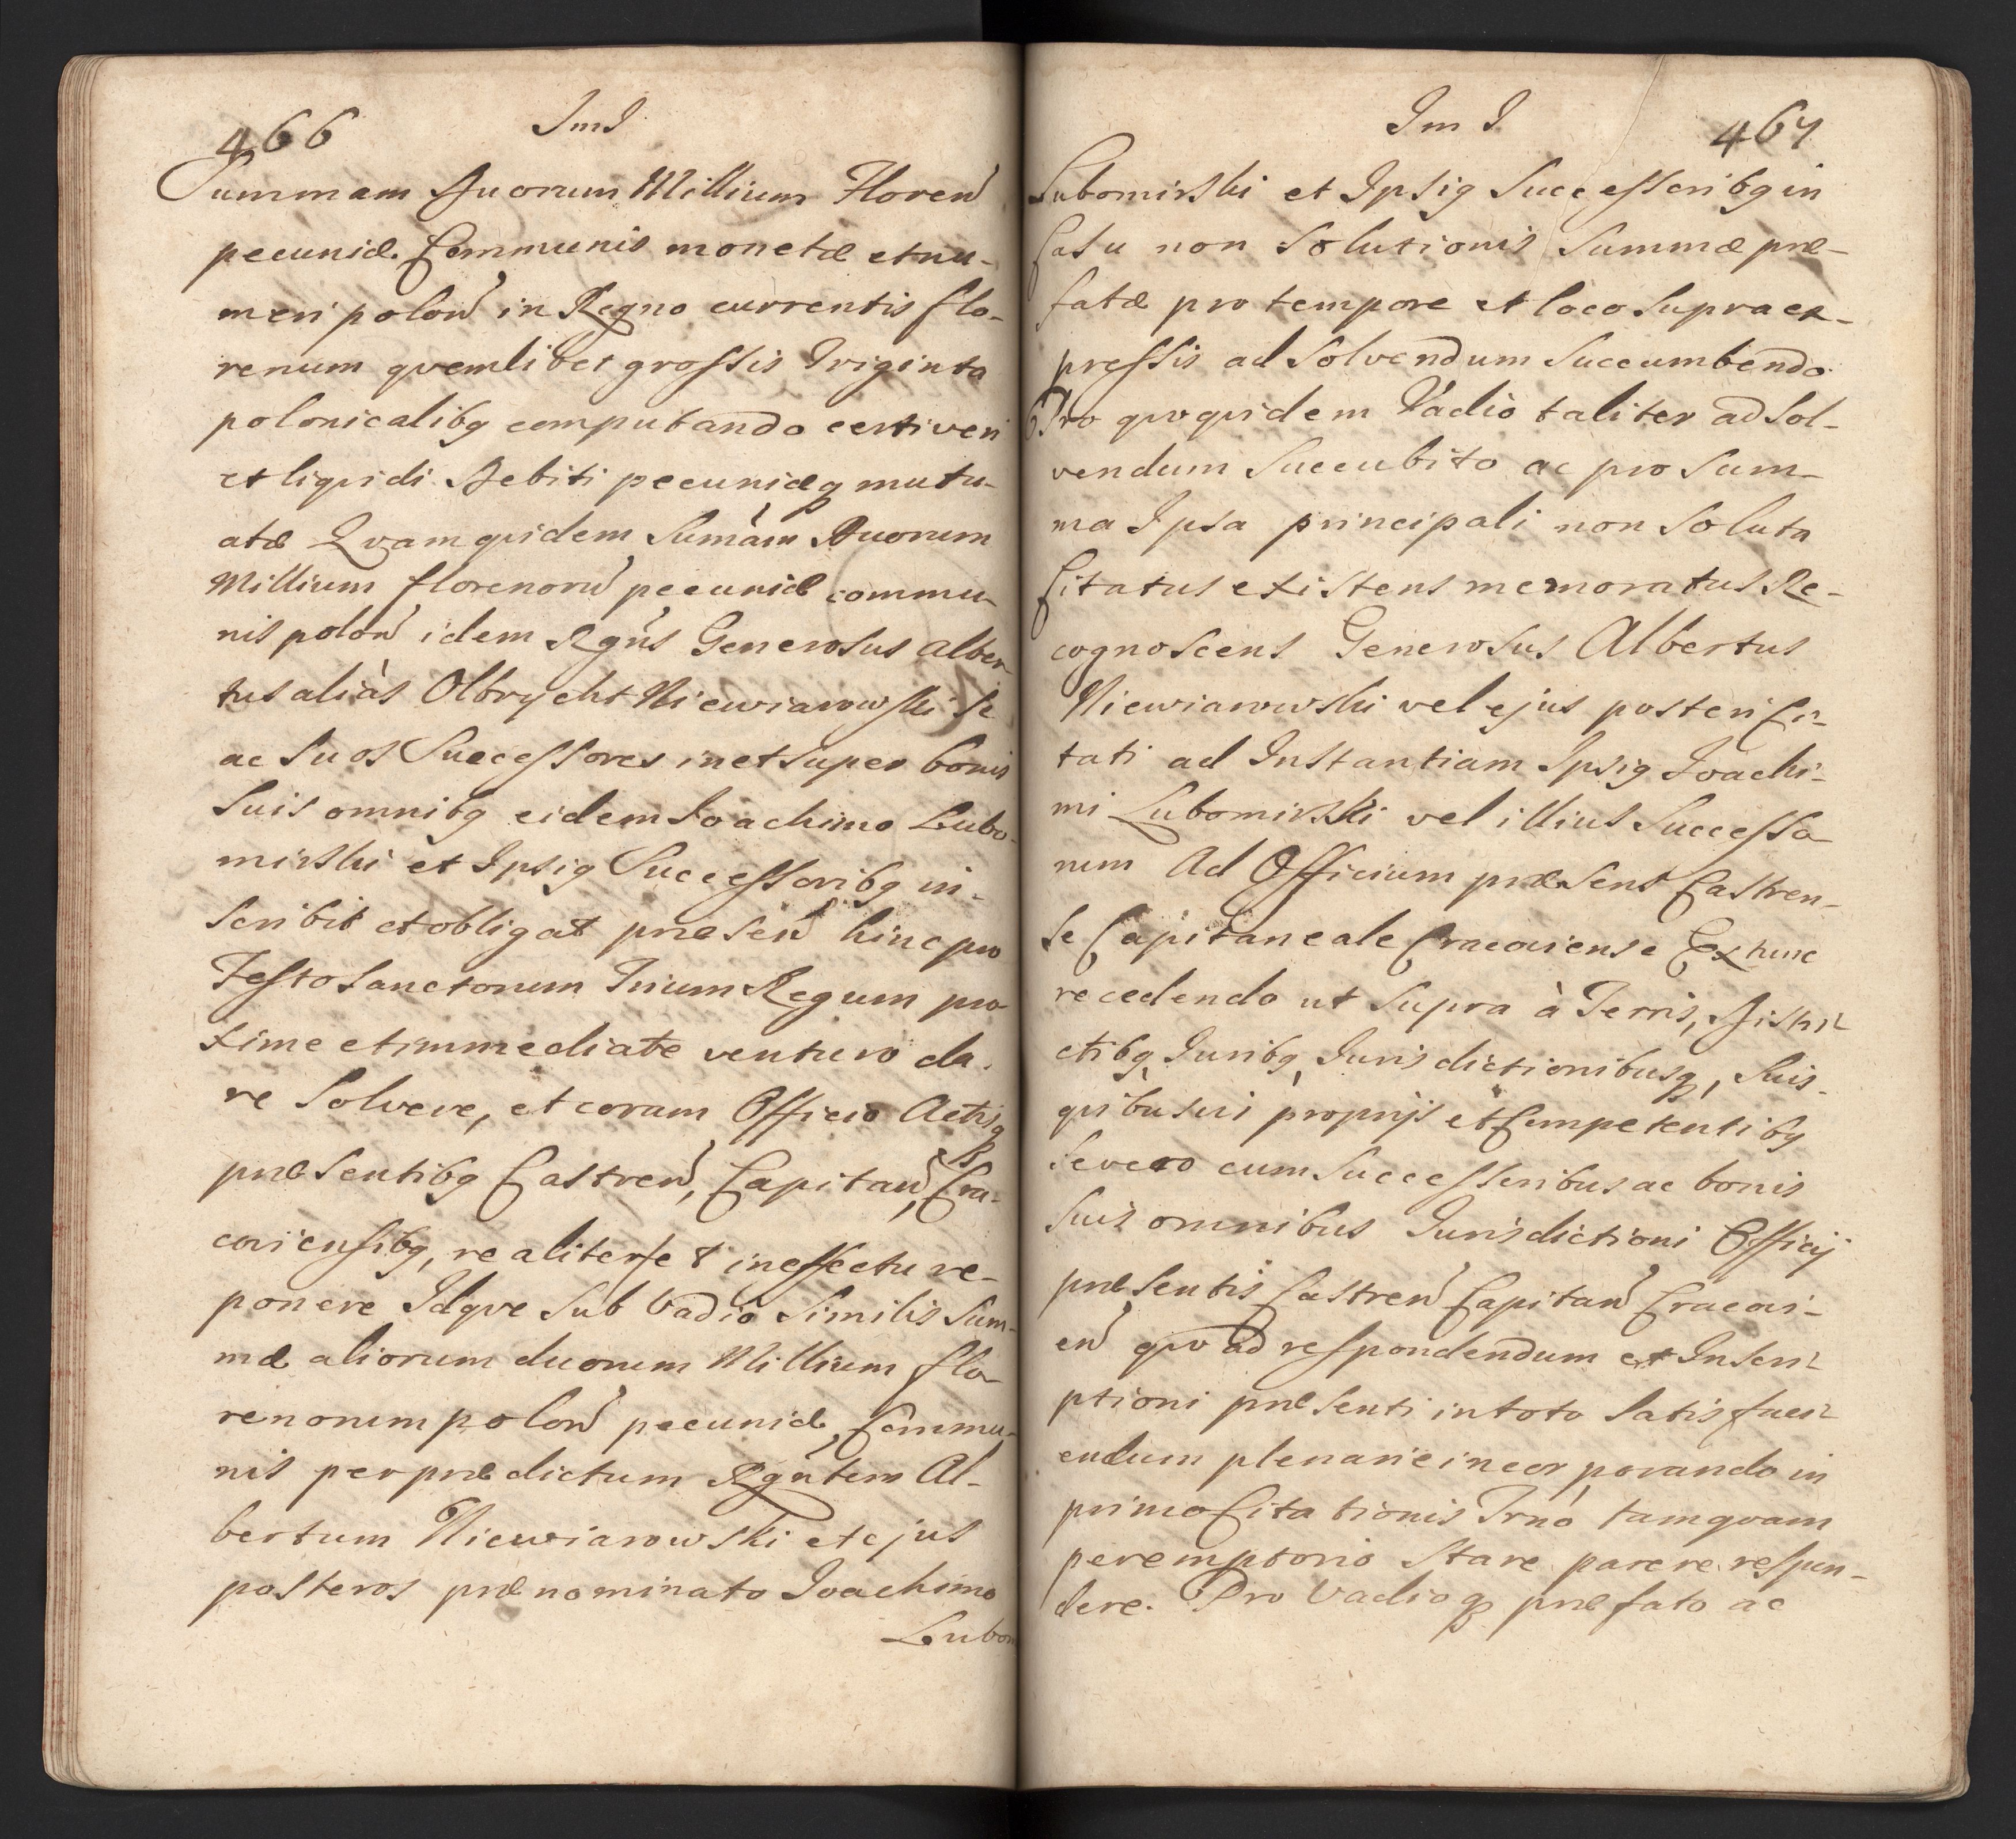 466 ImI
Summam Duorum Millium Floren
pecuniæ Communis monetæ et nu-
meri polon in Regno currentis flo-
renum qvemlibet grossis Triginta
polonicalibq computando certi veri
et liqvidi Debiti pecuniæq mutu-
atæ Qvam qvidem Sumam Duorum
Millium florenoru pecuniæ commu-
nis polon idem Rgns Generosus Alber-
tus aliàs Olbrycht Niewiarowski se
ac Suos Successores in et super bonis
Suis omnibq eidem Joachimo Lubo-
mirski et Ipsiq Successoribq in-
scribit et obligat præsen hinc pro
Festo Sanctorum Trium Regum pro
xime et immediate venturo da-
re Solvere, et coram Officio Actisq
præsentibq Castren, Capitan, Cra-
coviensibq, realiter et in effectu re-
ponere Idqve Sub Vadio Similis Sum-
mæ aliorum duorum Millium flo-
renorum polon pecuniæ Commu-
nis per prædictum Rgntem Al-
bertum Niewiarowski et ejus
posteros prænominato Joachimo
Lubom
Im I 467
Lubomirski et Ipsiq Successoribq in
Casu non Solutionis Summæ præ-
fatæ pro tempore et loco Supra ex-
pressis ad Solvendum Succumbendo
Pro qvoqvidem Vadio taliter ad Sol-
vendum Succubito ac pro Sum-
ma Ipsa principali non Soluta
Citatus existens memoratus Re-
cognoscens Generosus Albertus
Niewiarowski vel ejus posteri Ci-
tati ad Instantiam Ipsiq Joachi-
mi Lubomirski vel illius Successo
rum Ad Officium præsens Castren-
se Capitaneale Cracoviense Ex tunc
recedendo ut Supra à Terris, Distri-
ctibq Juribq Jurisdictionibusq, Suis
qvibusvi proprijs et Competentibq
Se vero cum Successoribus ac bonis
Suis omnibus Jurisdictioni Officij
præsentis Castren Capitan Cracovi-
en qvo ad respondendum et Inscri-
ptioni præsenti in toto Satisfaci-
endum plenarie incorporando in
primo Citationis Trno tamqvam
peremptorio Stare parere respon-
dere. Pro Vadioq præfato ac